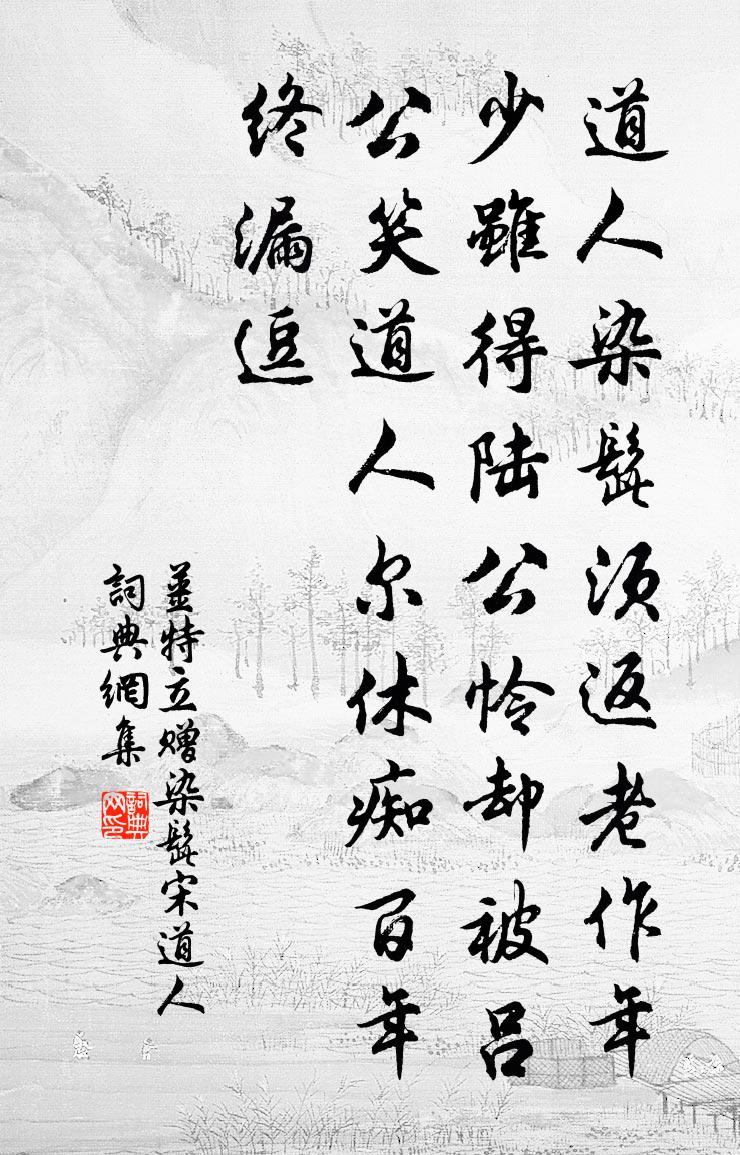 道人染髭须返老作年
少虽得陆公怜却被吕
公笑道人尔休痴百年
终漏逗
姜特立赠染髭宋道人
词典網集
詞典网印